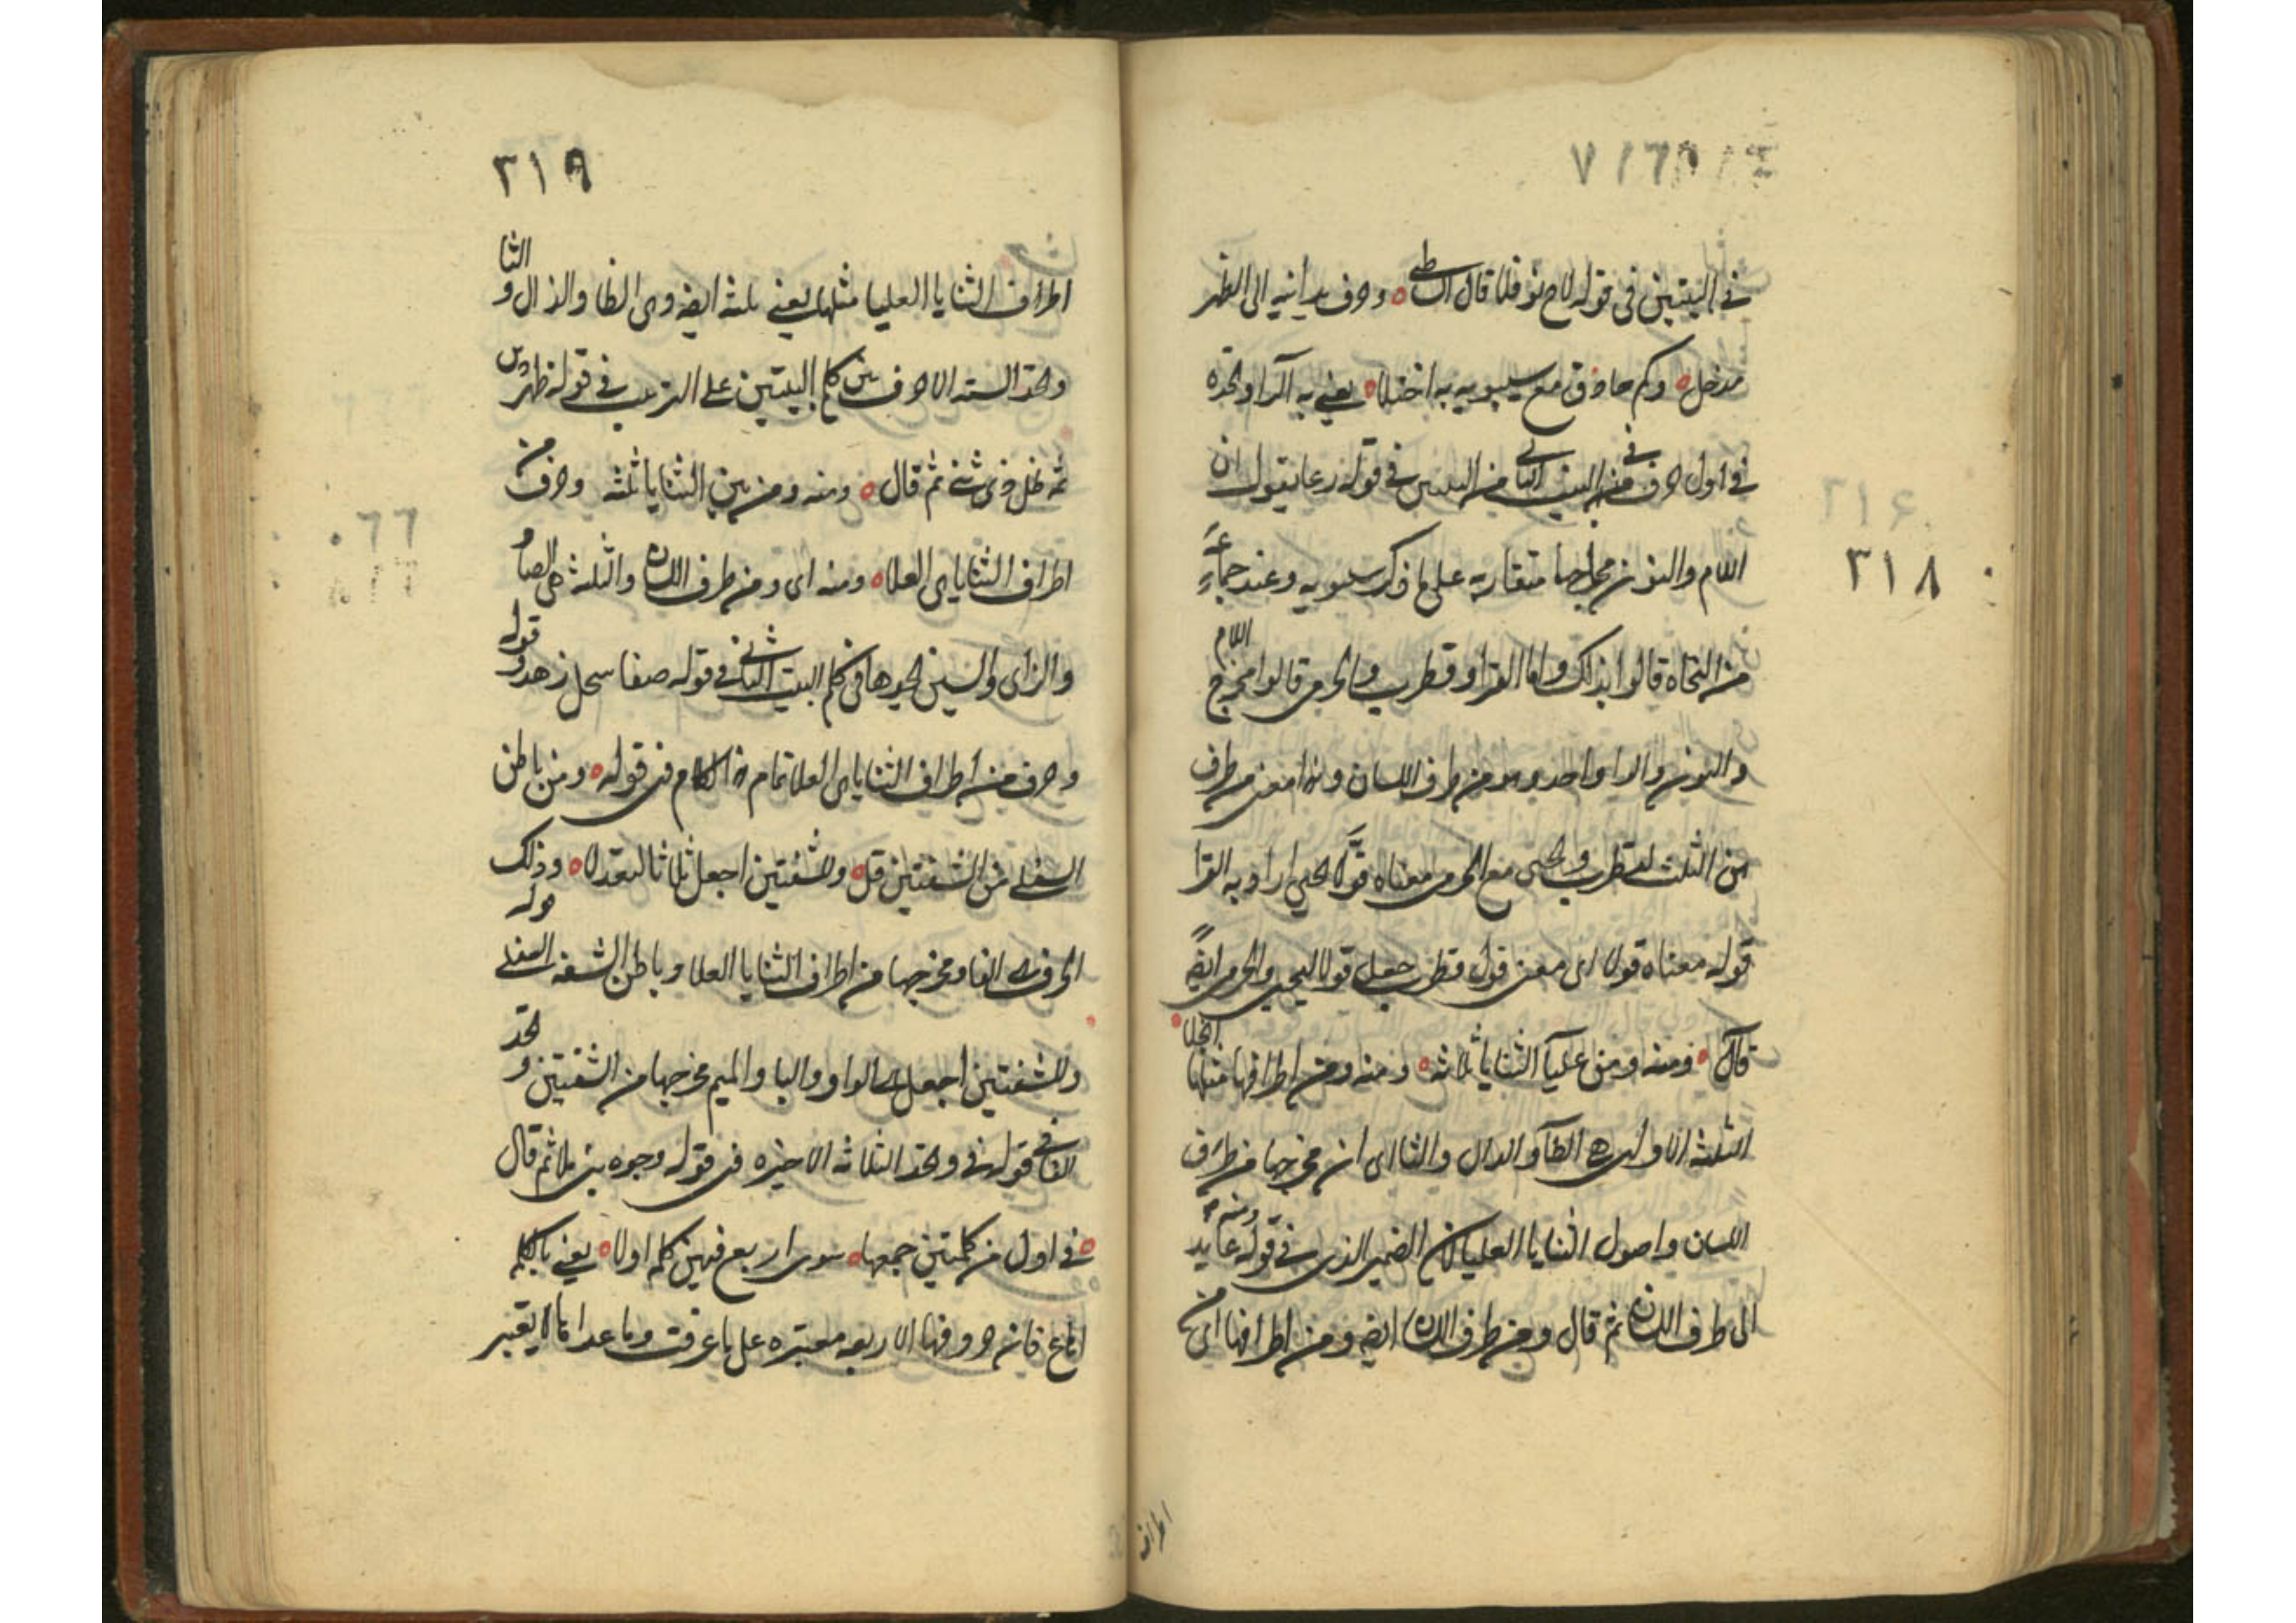 ٣١٨
في البيتين في قوله لاح نوفلا قال الشاطبي وحرف يدانيه الى الظهر
مدخل وكم حاذق مع سيبويه به اجتلا يعني به الرا وتجده
في اول حرف من البيت الثاني من البيتين في قوله رعا يقول ان
اللام والنون مخارجها متقاربة على ما ذكر سيبويه وعند جماعة
من النحاة قالوا بذلك واما الفرا وقطرب والجرمي قالوا مخرج اللام
والنون والرا واحد وهو من طرف اللسان وهذا معنى من طرف
هن الثلث لقطرب ويحيى مع الجرمي معناه قولا يحيى اراد به الفرا
قوله معناه قولا اى معنى قول قطرب جعل قولا ليحيى والجرمي ايضا
قال ومنه ومن عليا الثنايا ثلاثة ومنه ومن اطرافها مثلها انجلا
الثلثة الاولى هي الطا والدال والتا اى ان مخرجها من طرف
اللسان واصول الثنايا العليا لان الضمير الذى في قوله ومنه عايد
الى طرف اللسان ثم قال ومن طرف اللسان ايضا ومن اطرافها اى من
اطراف
٣١٩
اطراف الثنايا العليا مثلها يعني ثلثة ايضا وهى الظا والذال والثا
وتجد الستة الاحرف من كلم البيتين على الترتيب في قوله ظهر
ثم قال ومنه ومن بين الثنايا ثلثة وحرف من
اطراف الثنايا هى العلا ومنه اى ومن طرف اللسان والثلثة هى الصاد
والزاى والسين تجدها في كلم البيت الثاني في قوله صفا سجل زهد وقوله
وحرف من اطراف الثنايا هى العلا تمام الكلام في قوله ومن باطن
السفلى من الشفتين قل وللشفتين اجعل ثلاثا لتعدلا وذلك
الحرف هو الفا ومخرجها من اطراف الثنايا العلا وباطن الشفة السفلى
وللشفتين اجعل الواو والبا والميم مخرجها من الشفتين وتجد
الفا في قوله في وتجد الثلاثة الاخيرة في قوله وجوه بني ملا ثم قال
في اول من كلمتين جمعها سوى اربع فيهن كلمة اولا يعني بالكلمة
اهاع فان حروفها الاربعة معتبرة على ما عرفت وما عداها لا يعتبر